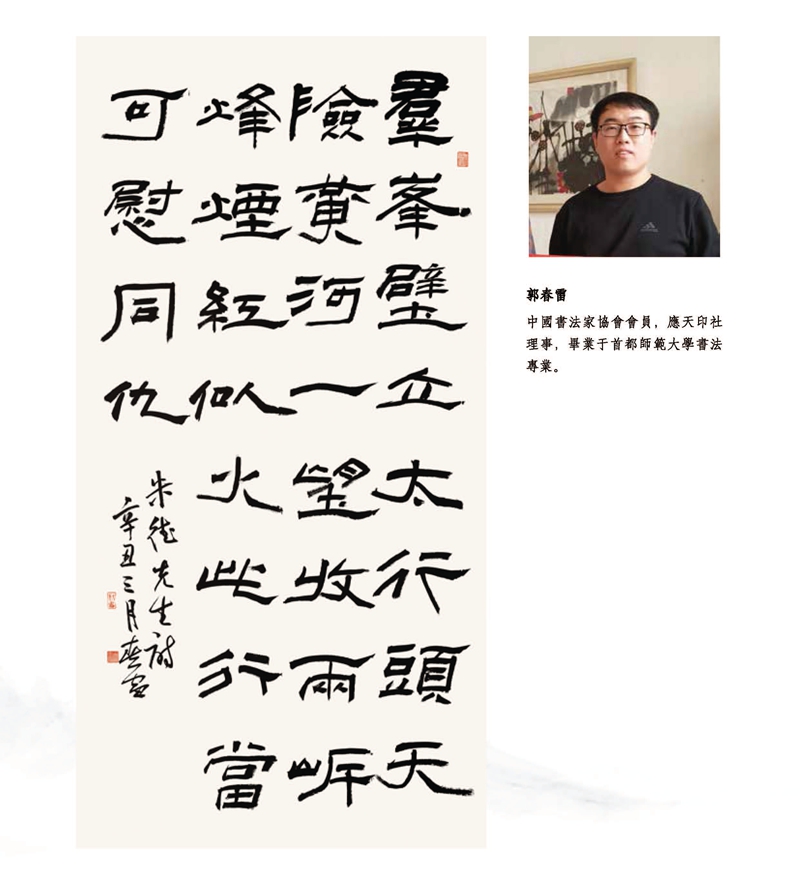 羣峯壁立太行頭天
險黃河一望收兩岸
烽煙紅似火此行當
可慰同仇
朱德先生詩
辛丑三月春雷
郭春雷
中國書法家協會會員，應天印社
理事，畢業于首都師範大學書法
專業。